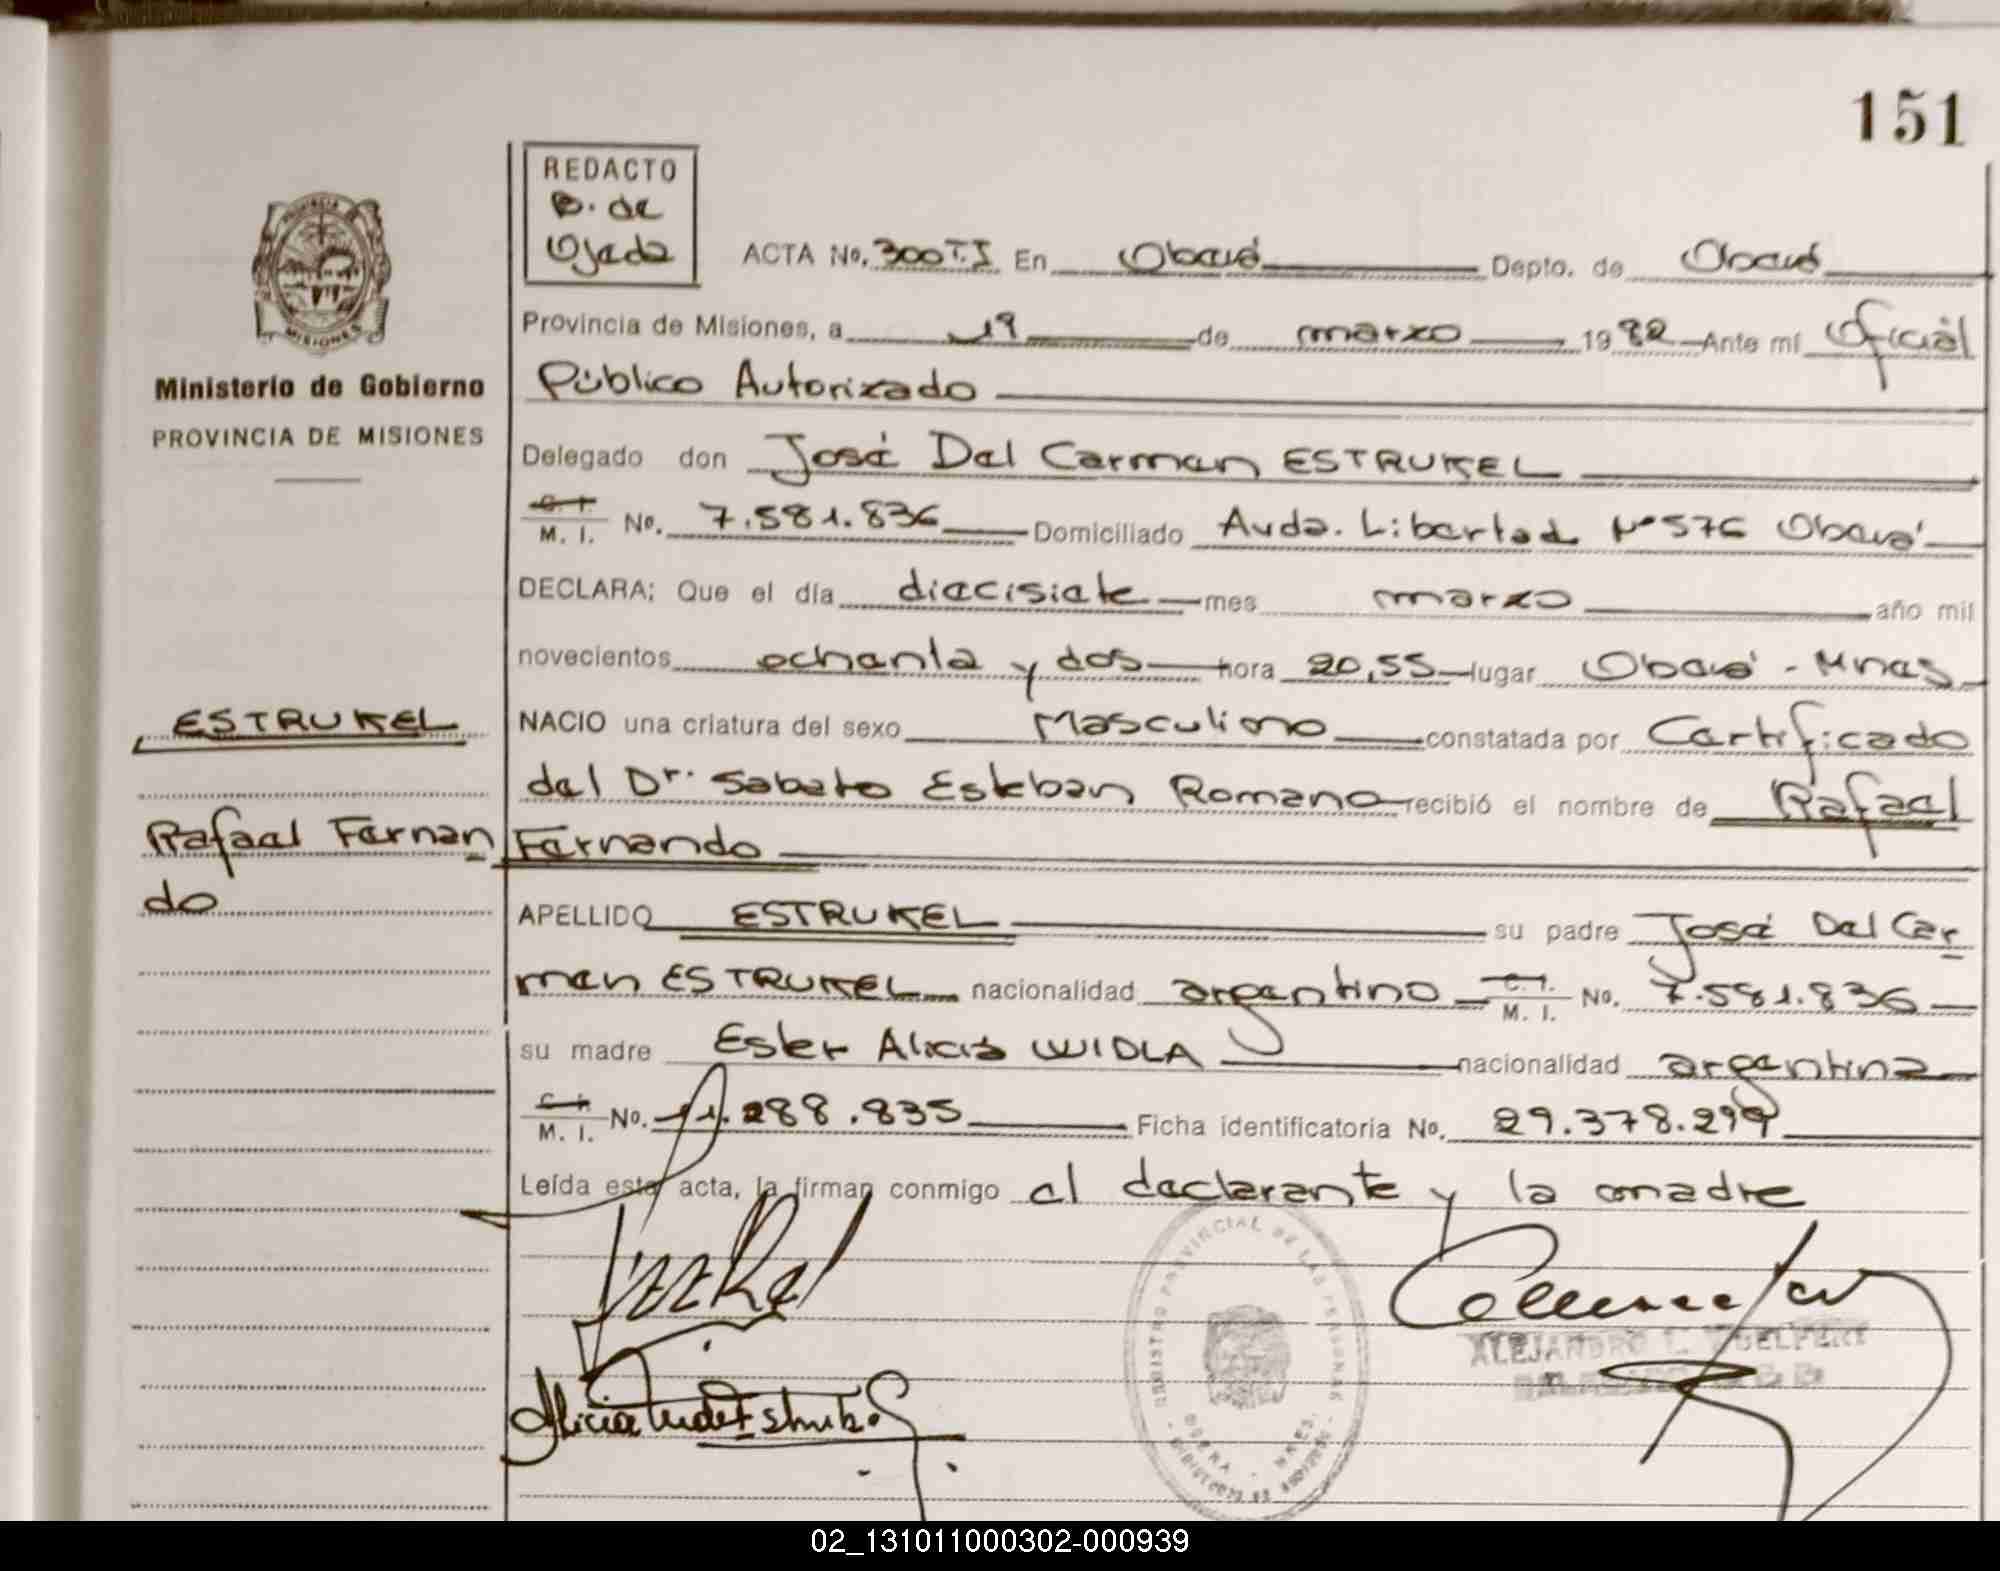 151
REDACTO
B. de
Ojeda
PROVINCIA DE
MISIONES
Ministerio de Gobierno
PROVINCIA DE MISIONES
ACTA No. 300 T.I En Oberá Depto. de Oberá
Provincia de Misiones, a 19 de marzo 1982 Ante mí Oficial
Público Autorizado
Delegado don José Del Carmen ESTRUKEL
C. I.
M. I. No. 7.581.836 Domiciliado Avda. Libertad Nº 576 Oberá
DECLARA; Que el día diecisiete mes marzo año mil
novecientos ochenta y dos hora 20,55 lugar Oberá - Mnes
ESTRUKEL
NACIO una criatura del sexo Masculino constatada por Certificado
del Dr. Sabato Esteban Romano recibió el nombre de Rafael
Rafael Fernan
do
Fernando
APELLIDO ESTRUKEL su padre José Del Car
men ESTRUKEL nacionalidad argentino C. I.
M. I. No. 7.581.836
su madre Ester Alicia WIDLA nacionalidad argentina
C. I.
M. I. No. 11.288.835 Ficha identificatoria No. 29.378.299
Leída esta acta, la firman conmigo el declarante y la madre
REGISTRO PROVINCIAL DE LAS PERSONAS
OBERA - MNES.
ALEJANDRO L. WUELFERT
02_131011000302-000939